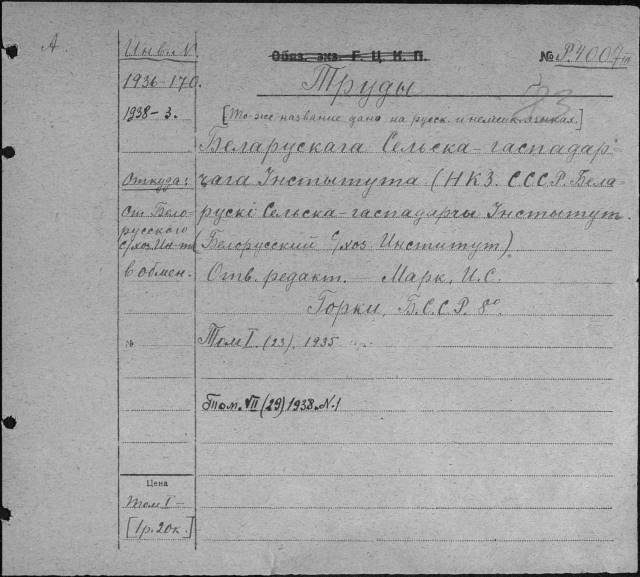 А.
Инв. N.
1936-170.
1938-3.
Откуда:
От Бело-
русского
с/хоз. Ин-та
в обмен.
№
Цена
Том I –
[1р.20к.]
Обяз. экз. Г. Ц. К. П.
№ Р.4007
Труды
[То-же название дано на русск. и немецк. языках.]
Беларускага Сельска-гаспадар-
чага Інстытута (НКЗ. СССР. Бела-
рускі Сельска-гаспадарчы Інстытут.
(Белорусский с/хоз Институт)
Отв. редакт. – Марк, И.С.
Горки, Б.С.С.Р. 8°
Том I. (23). 1935
Том. VII (29) 1938. N.1